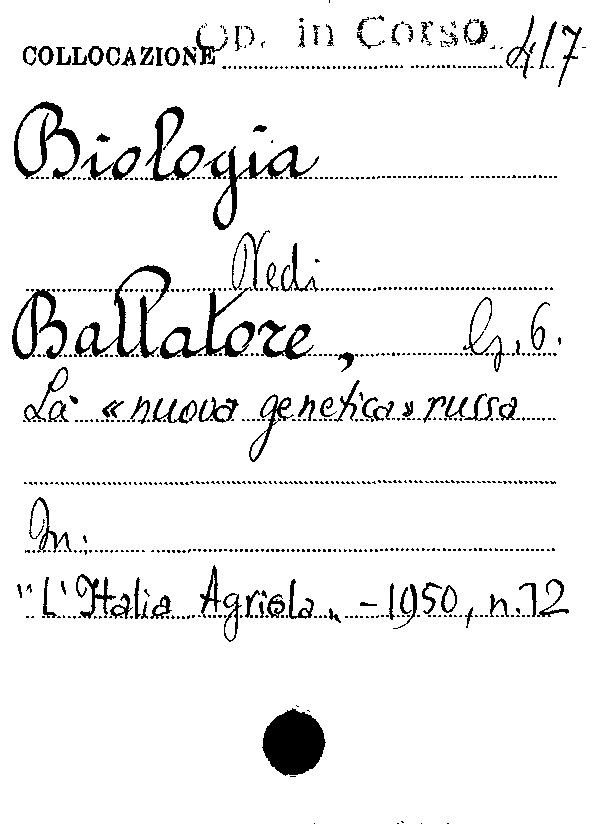 COLLOCAZIONE Op. in Corso 417
Biologia
Vedi
Battatore, G.6.
La «nuova genetica» russa
In:
"L'Italia Agricola„ - 1950, n.12